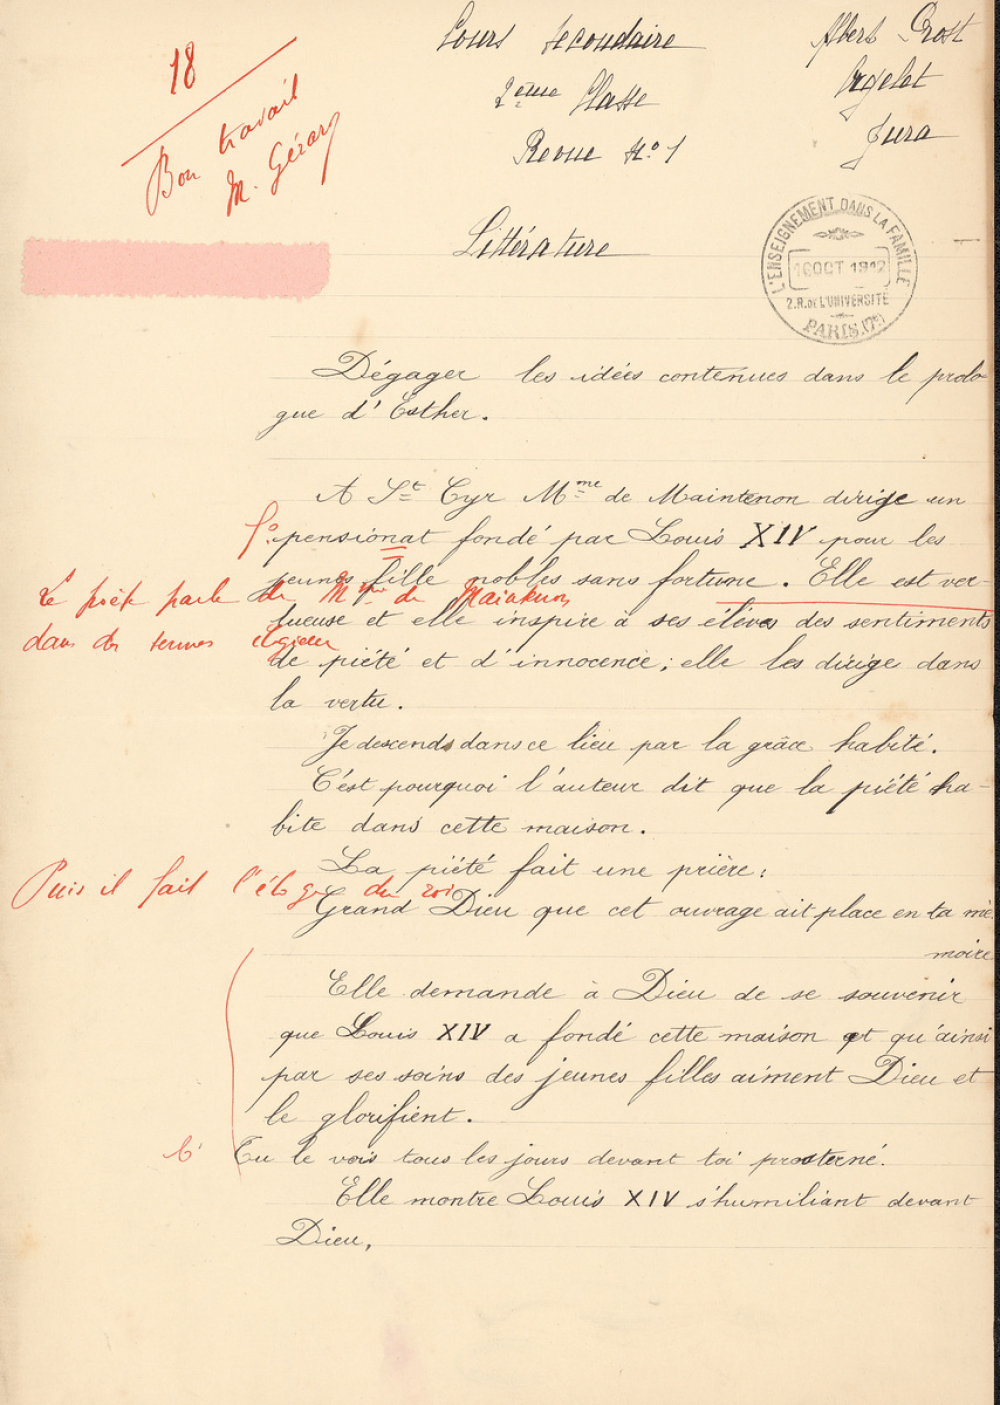 18
Bon travail
M. Gérard
Cours secondaire
2ème Classe
Revue N°1
Albert Prost
Orgelet
Jura
Littérature
L'ENSEIGNEMENT DANS LA FAMILLE
16 OCT 1912
2.R.DE L'UNIVERSITÉ
PARIS.(7e)
Dégager les idées contenues dans le prolo-
gue d'Esther.
A St Cyr Mme de Maintenon dirige un
f° pensionat fondé par Louis XIV pour les
jeunes fille nobles sans fortune. Elle est ver-
Le poète parle de Mme de Maintenon
tueuse et elle inspire à ses élèves des sentiments
dans des termes élogieux
de piété et d'innocence; elle les dirige dans
la vertu.
Je descends dans ce lieu par la grâce habité.
C'est pourquoi l'auteur dit que la piété ha-
bite dans cette maison.
La piété fait une prière:
Puis il fait l'éloge du roi
Grand Dieu que cet ouvrage ait place en ta mé-
moire
Elle demande à Dieu de se souvenir
que Louis XIV a fondé cette maison et qu'ainsi
par ses soins des jeunes filles aiment Dieu et
le glorifient.
Tu le vois tous les jours devant toi prosterné.
Elle montre Louis XIV s'humiliant devant
Dieu,